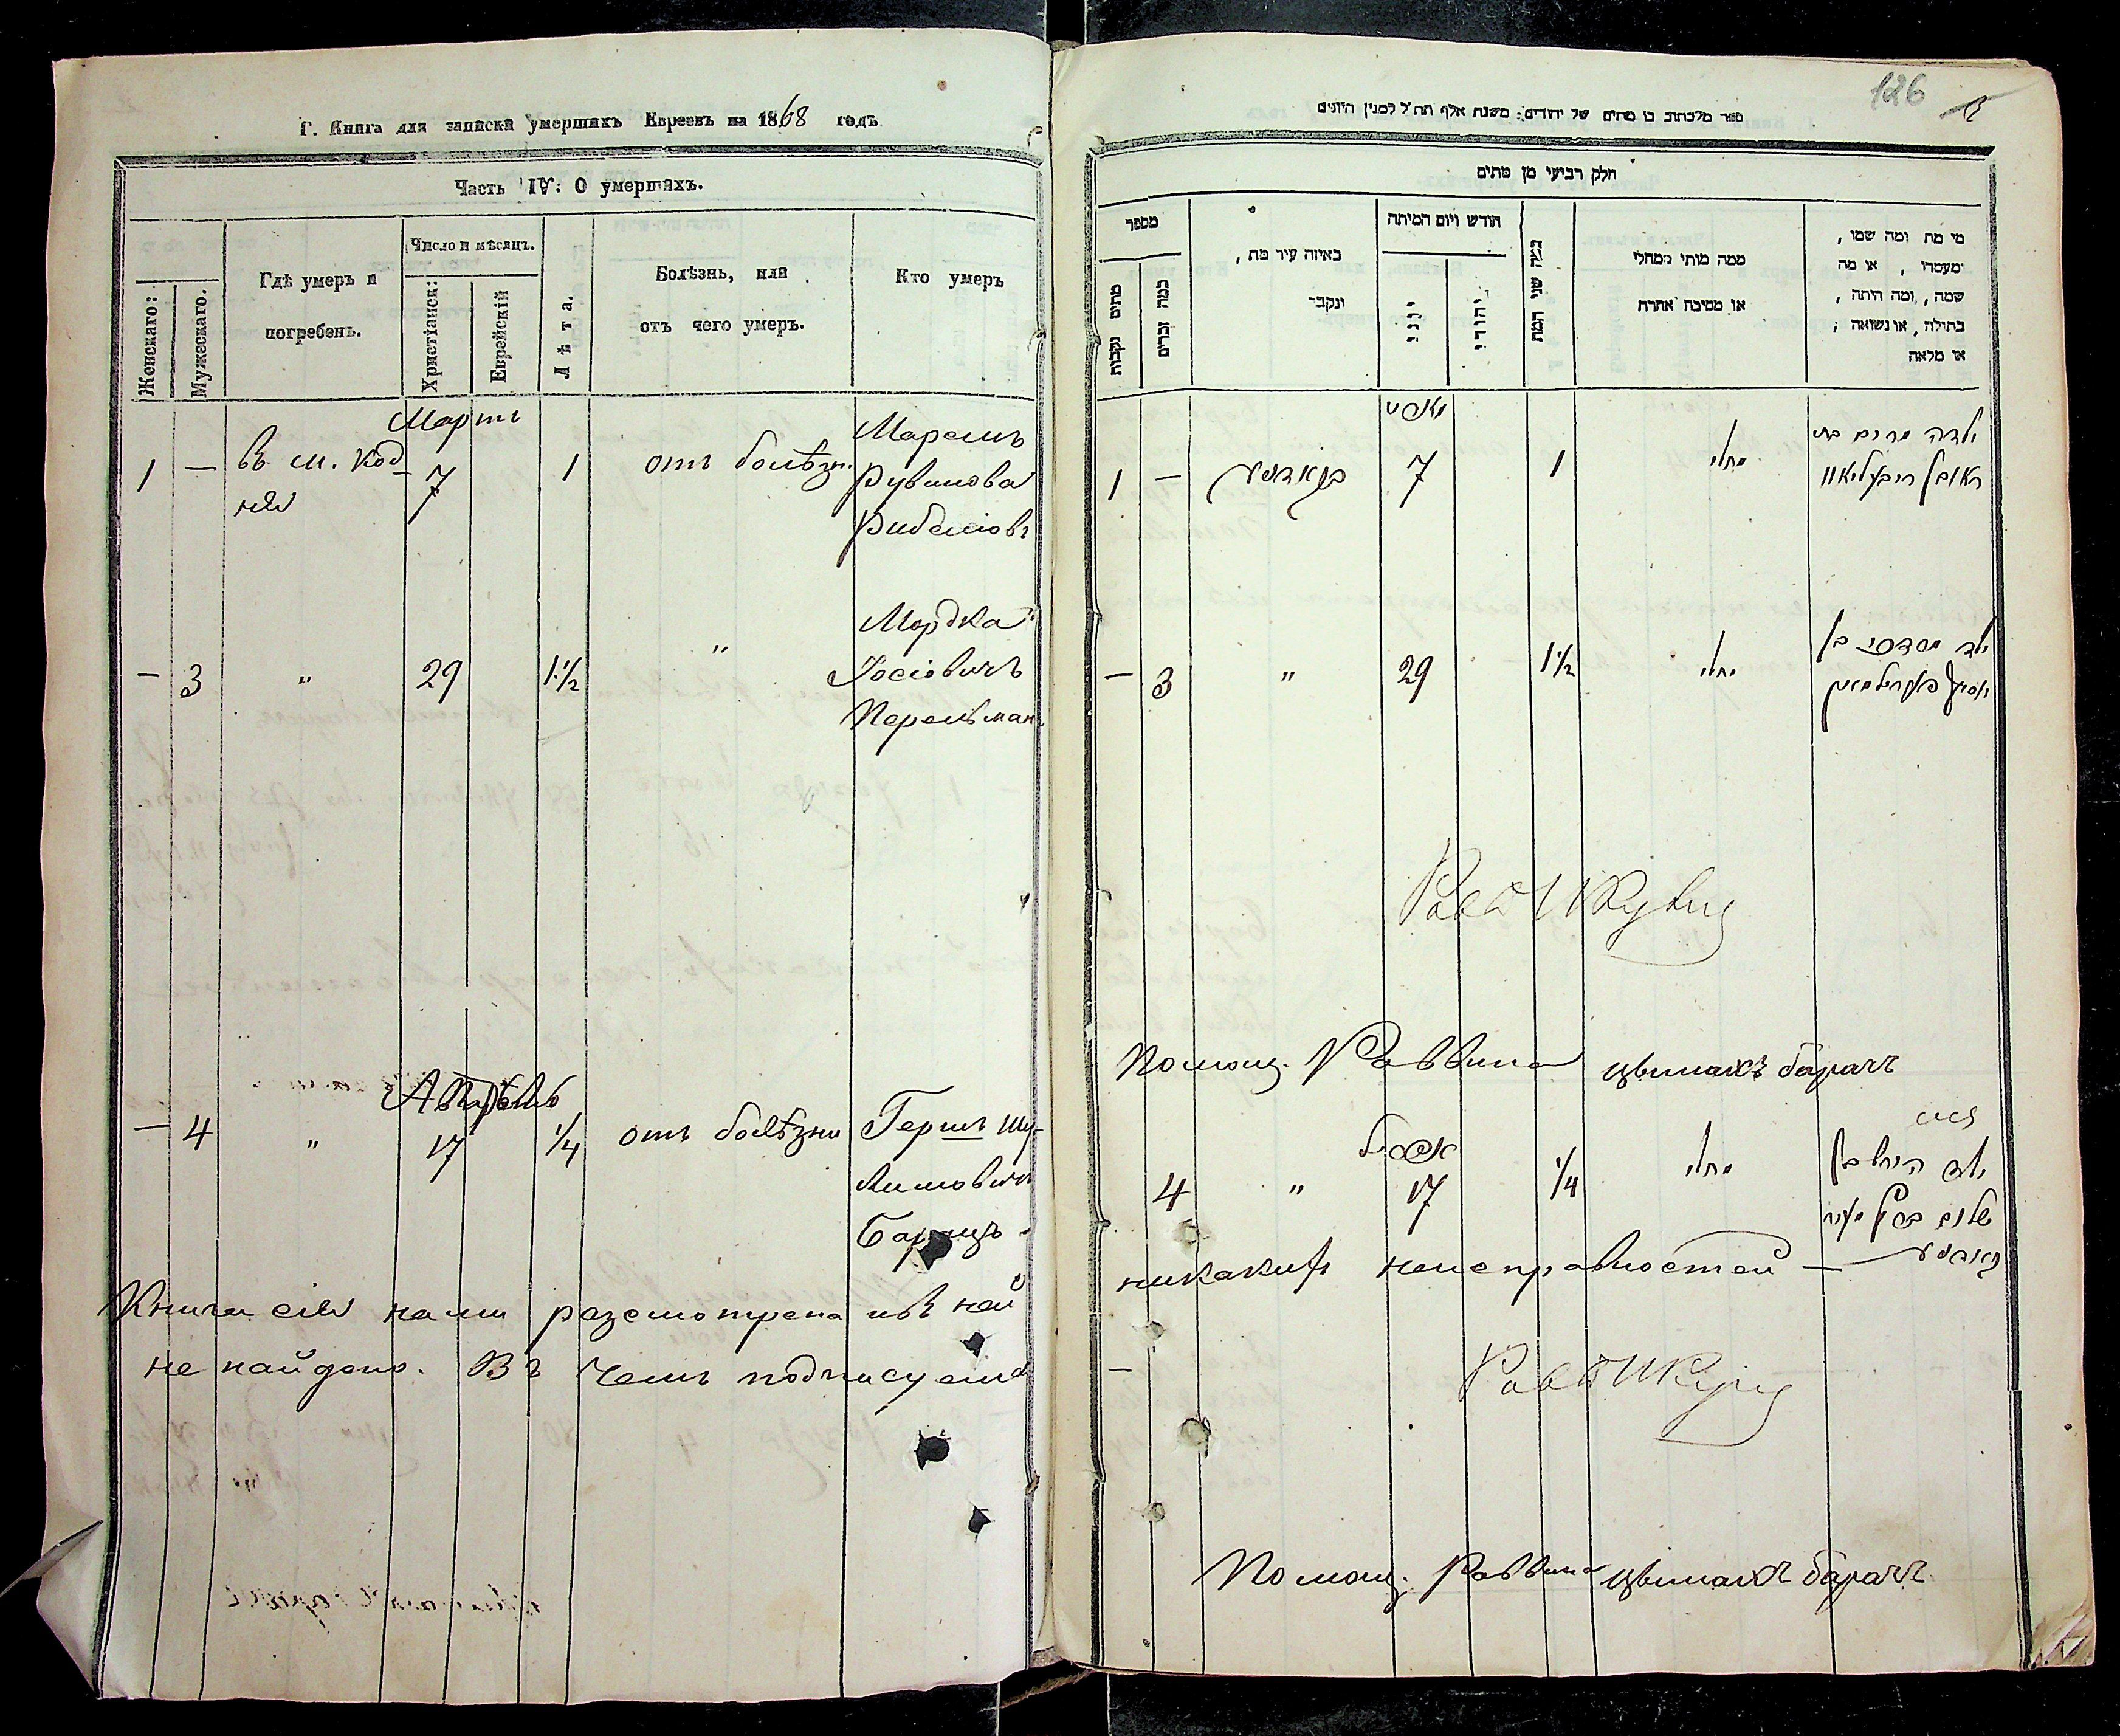 Г. Книга для записки умершихъ Евреевъ на 1868 годъ
Часть IV: О умершихъ.
Женскаго:
Мужескаго.
Гдѣ умеръ и
погребенъ.
Число и мѣсяцъ.
Христіанск:
Еврейскій
Лѣта.
Болѣзнь, или
отъ чего умеръ.
Кто умеръ
Мартъ
1 — въ м. Код
ня 7 1 отъ болѣзн.
Маремъ
Рувинова
— 3 " 29 1 1/2 "
Мордка
Іосіовичъ
Перельман
Апрѣль
— 4 " 17 1/4 отъ болѣзни
Гершъ Шу-
лимовичъ
Книга сія нами разсмотрена и въ ней
не найдено. Въ чемъ подписуемся
126
ספר מלכתוב בו מתים של יהודים: משנת אלף תת״ל למנין היונים
חלק רביעי מן מתים
מספר
מתים נקבות
כמה זכרים
באיזה עיר מת,
ונקבר
חודש ויום המיתה
יוני
יהודי
כמה שני המת
ממה מותי המחלי
או מסיבה אחרת
מי מת ומה שמו,
ומעמדו, או מה
שמה, ומה היתה,
בתולה, או נשואה;
או מלאה
מארט
1 — 7 1 מחלי
ילדה מרים בת
ראובן
— 3 " 29 1 1/2 מחלי
ילד מרדכי בן
יוסף פערילמאן
Помощ. Раввина Цвишахъ Барачъ
אפריל
4 " 17 1/4 מחלי
ילד הירש בן
שלום
никакихъ неисправностей —
Помощ. Раввина Цвишахъ Барачъ